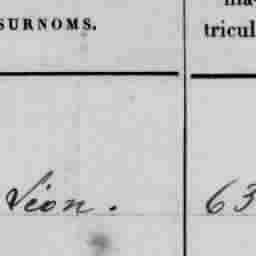 SURNOMS.
ma-
tricul
Léon. 63